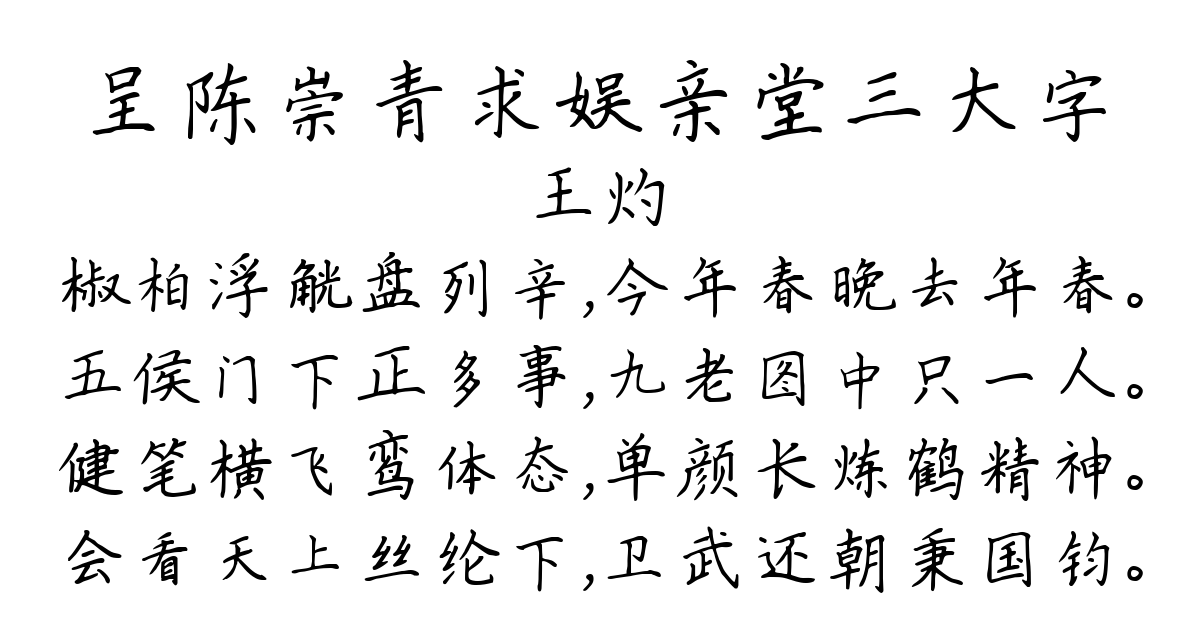 呈陈崇青求娱亲堂三大字
王灼
椒柏浮觥盘列辛,今年春晚去年春。
五侯门下正多事,九老图中只一人。
健笔横飞鸾体态,单颜长炼鹤精神。
会看天上丝纶下,卫武还朝秉国钧。